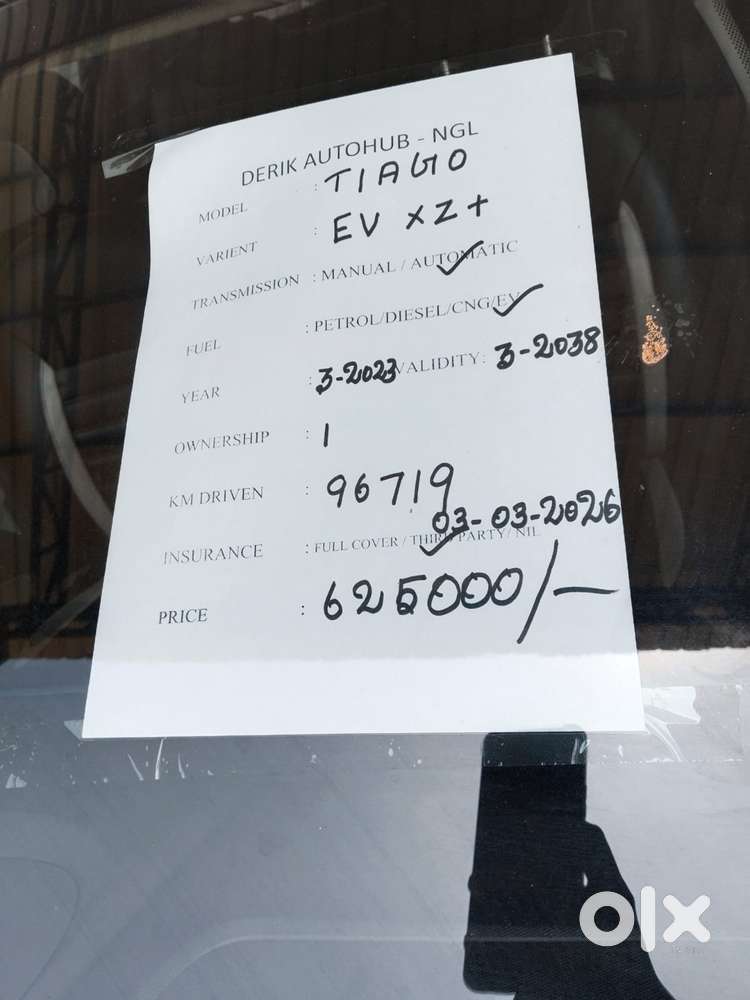 DERIK AUTOHUB - NGL
MODEL : TIAGO
VARIENT : EV XZ+
TRANSMISSION : MANUAL / AUTOMATIC
FUEL : PETROL/DIESEL/CNG/EV
YEAR : 3-2023 VALIDITY: 3-2038
OWNERSHIP : 1
KM DRIVEN : 96719
03-03-2026
INSURANCE : FULL COVER / THIRD PARTY / NIL
PRICE : 625000/-
olx